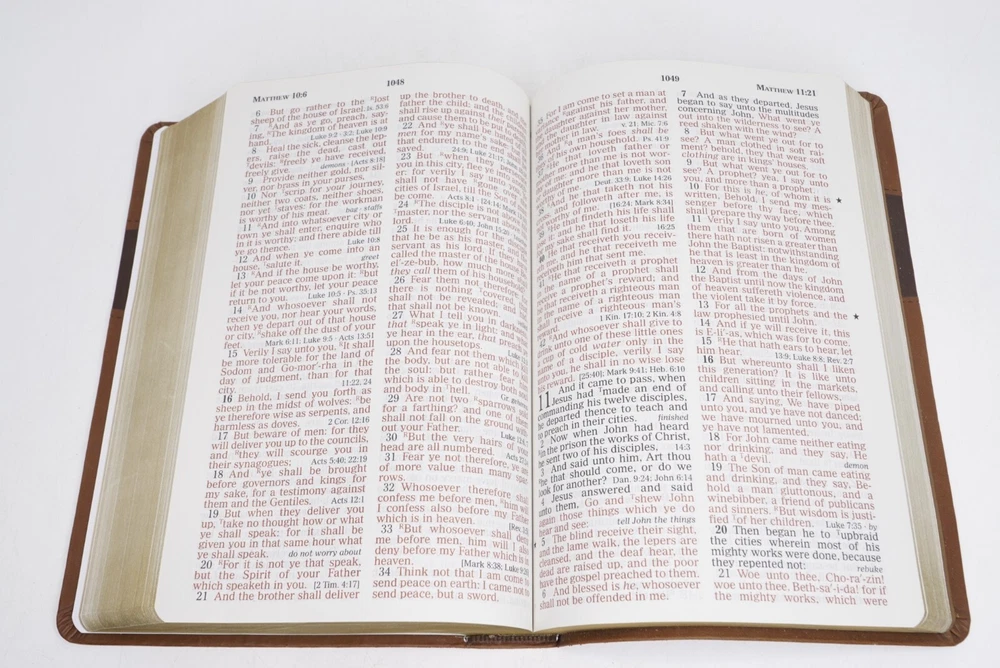 1048
MATTHEW 10:6
6 But go rather to the ᴿlost
sheep of the house of Israel. Is. 53:6
7 ᴿAnd as ye go, preach, say-
ing, ᴿThe kingdom of heaven is at
hand. Luke 9:2 · 3:2; Luke 10:9
8 Heal the sick, cleanse the lep-
ers, raise the dead, cast out
ᵀdevils: ᴿfreely ye have received,
freely give. demons · [Acts 8:18]
9 Provide neither gold, nor sil-
ver, nor brass in your purses,
10 Nor ᵀscrip for your journey,
neither two coats, neither shoes,
nor yet ᵀstaves: for the workman
is worthy of his meat. bag · staffs
11 ᴿAnd into whatsoever city or
town ye shall enter, enquire who
in it is worthy; and there abide till
ye go thence. Luke 10:8
12 And when ye come into an
house, ᵀsalute it. greet
13 ᴿAnd if the house be worthy,
let your peace come upon it: ᴿbut
if it be not worthy, let your peace
return to you. Luke 10:5 · Ps. 35:13
14 ᴿAnd whosoever shall not
receive you, nor hear your words,
when ye depart out of that house
or city, ᴿshake off the dust of your
feet. Mark 6:11; Luke 9:5 · Acts 13:51
15 Verily I say unto you, ᴿIt shall
be more tolerable for the land of
Sodom and Go-mor´-rha in the
day of judgment, than for that
city. 11:22, 24
16 Behold, I send you forth as
sheep in the midst of wolves: ᴿbe
ye therefore wise as serpents, and
harmless as doves. 2 Cor. 12:16
17 But beware of men: for they
will deliver you up to the councils,
and ᴿthey will scourge you in
their synagogues; Acts 5:40; 22:19
18 And ᴿye shall be brought
before governors and kings for
my sake, for a testimony against
them and the Gentiles. Acts 12:1
19 ᴿBut when they deliver you
up, ᵀtake no thought how or what
ye shall speak: for it shall be
given you in that same hour what
ye shall speak. do not worry about
20 ᴿFor it is not ye that speak,
but the Spirit of your Father
which speaketh in you. [2 Tim. 4:17]
21 And the brother shall deliver
up the brother to death, and
father the child: and the
shall rise up against
and cause them to be put
22 And ᴿye shall be
men for my name's sake:
that endureth to the end
saved. 24:9; Luke 21:17
23 But ᴿwhen they
you in this city, flee ye into
er: for verily I say unto
shall not have ᴿgone
cities of Israel, till the Son
be come. Acts 8:1 · [24:14; Mark
24 ᴿThe disciple is not above
ᵀmaster, nor the servant
lord. Luke 6:40; John 15:20
25 It is enough for the
that he be as his master, and
servant as his lord. If they
called the master of the house
el´-ze-bub, how much more
they call them of his household?
26 Fear them not therefore:
there is nothing ᵀcovered,
shall not be revealed; and
that shall not be known.
27 What I tell you in darkness,
that ᴿspeak ye in light: and what
ye hear in the ear, that preach
upon the housetops.
28 And fear not them which
the body, but are not able to
the soul: but rather fear
which is able to destroy both
and body in ᵀhell.
29 Are not two ᴿsparrows sold
for a farthing? and one of them
shall not fall on the ground
out your Father.
30 ᴿBut the very hairs of
head are all numbered.
31 Fear ye not therefore, ye are
of more value than many
rows.
32 Whosoever therefore shall
confess me before men, ᴿhim will
I confess also before my Father
which is in heaven.
33 ᴿBut whosoever shall deny
me before men, him will I also
deny before my Father which is in
heaven. [Mark 8:38; Luke 9:26]
34 Think not that I am come to
send peace on earth: I came not to
send peace, but a sword.
1049
MATTHEW 11:21
35 For I am come to set a man at
against his father, and
against her mother,
daughter in law against
in law. v. 21, Mic. 7:6
ᴿa man's foes shall be
of his own household. Ps. 41:9
that loveth father or
more than me is not wor-
and he that loveth son
daughter more than me is not
Deut. 33:9; Luke 14:26
And he that taketh not his
and followeth after me, is
[16:24; Mark 8:34]
ᴿHe that findeth his life shall
and he that loseth his life
my sake shall find it. 16:25
40 He that receiveth you receiv-
me, and he that receiveth me
him that sent me.
ᴿHe that receiveth a prophet
name of a prophet shall
receive a prophet's reward; and
that receiveth a righteous man
name of a righteous man
receive a righteous man's
1 Kin. 17:10; 2 Kin. 4:8
42 ᴿAnd whosoever shall give to
drink unto one of these little ones
cup of cold water only in the
name of a disciple, verily I say
unto you, he shall in no wise lose
his reward. [25:40]; Mark 9:41; Heb. 6:10
11 And it came to pass, when
Jesus had ᵀmade an end of
commanding his twelve disciples,
he departed thence to teach and
to preach in their cities. finished
2 Now when John had heard
ᴿin the prison the works of Christ,
he sent two of his disciples, 14:3
3 And said unto him, Art thou
ᴿhe that should come, or do we
look for another? Dan. 9:24; John 6:14
4 Jesus answered and said
unto them, Go and ᵀshew John
again those things which ye do
hear and see: tell John the things
5 The blind receive their sight,
and the lame walk, the lepers are
cleansed, and the deaf hear, the
dead are raised up, and the poor
have the gospel preached to them.
6 And blessed is he, whosoever
shall not be offended in me.
7 And as they departed, Jesus
began to say unto the multitudes
concerning John, What went ye
out into the wilderness to see? A
reed shaken with the wind?
8 But what went ye out for to
see? A man clothed in soft rai-
ment? behold, they that wear soft
clothing are in kings' houses.
9 But what went ye out for to
see? A prophet? yea, I say unto
you, and more than a prophet.
10 For this is he, of whom it is ★
written, Behold, I send my mes-
senger before thy face, which
shall prepare thy way before thee.
11 Verily I say unto you, Among
them that are born of women
there hath not risen a greater than
John the Baptist: notwithstanding
he that is least in the kingdom of
heaven is greater than he.
12 And from the days of John
the Baptist until now the kingdom
of heaven suffereth violence, and
the violent take it by force.
13 For all the prophets and the ★
law prophesied until John.
14 And if ye will receive it, this
is E-li´-as, which was for to come.
15 ᴿHe that hath ears to hear, let
him hear. 13:9; Luke 8:8; Rev. 2:7
16 But whereunto shall I liken
this generation? It is like unto
children sitting in the markets,
and calling unto their fellows,
17 And saying, We have piped
unto you, and ye have not danced;
we have mourned unto you, and
ye have not lamented.
18 For John came neither eating
nor drinking, and they say, He
hath a ᵀdevil. demon
19 The Son of man came eating
and drinking, and they say, Be-
hold a man gluttonous, and a
winebibber, a friend of publicans
and sinners. ᴿBut wisdom is justi-
fied ᵀof her children. Luke 7:35 · by
20 Then began he to ᵀupbraid
the cities wherein most of his
mighty works were done, because
they repented not: rebuke
21 Woe unto thee, Cho-ra´-zin!
woe unto thee, Beth-sa´-i-da! for if
the mighty works, which were